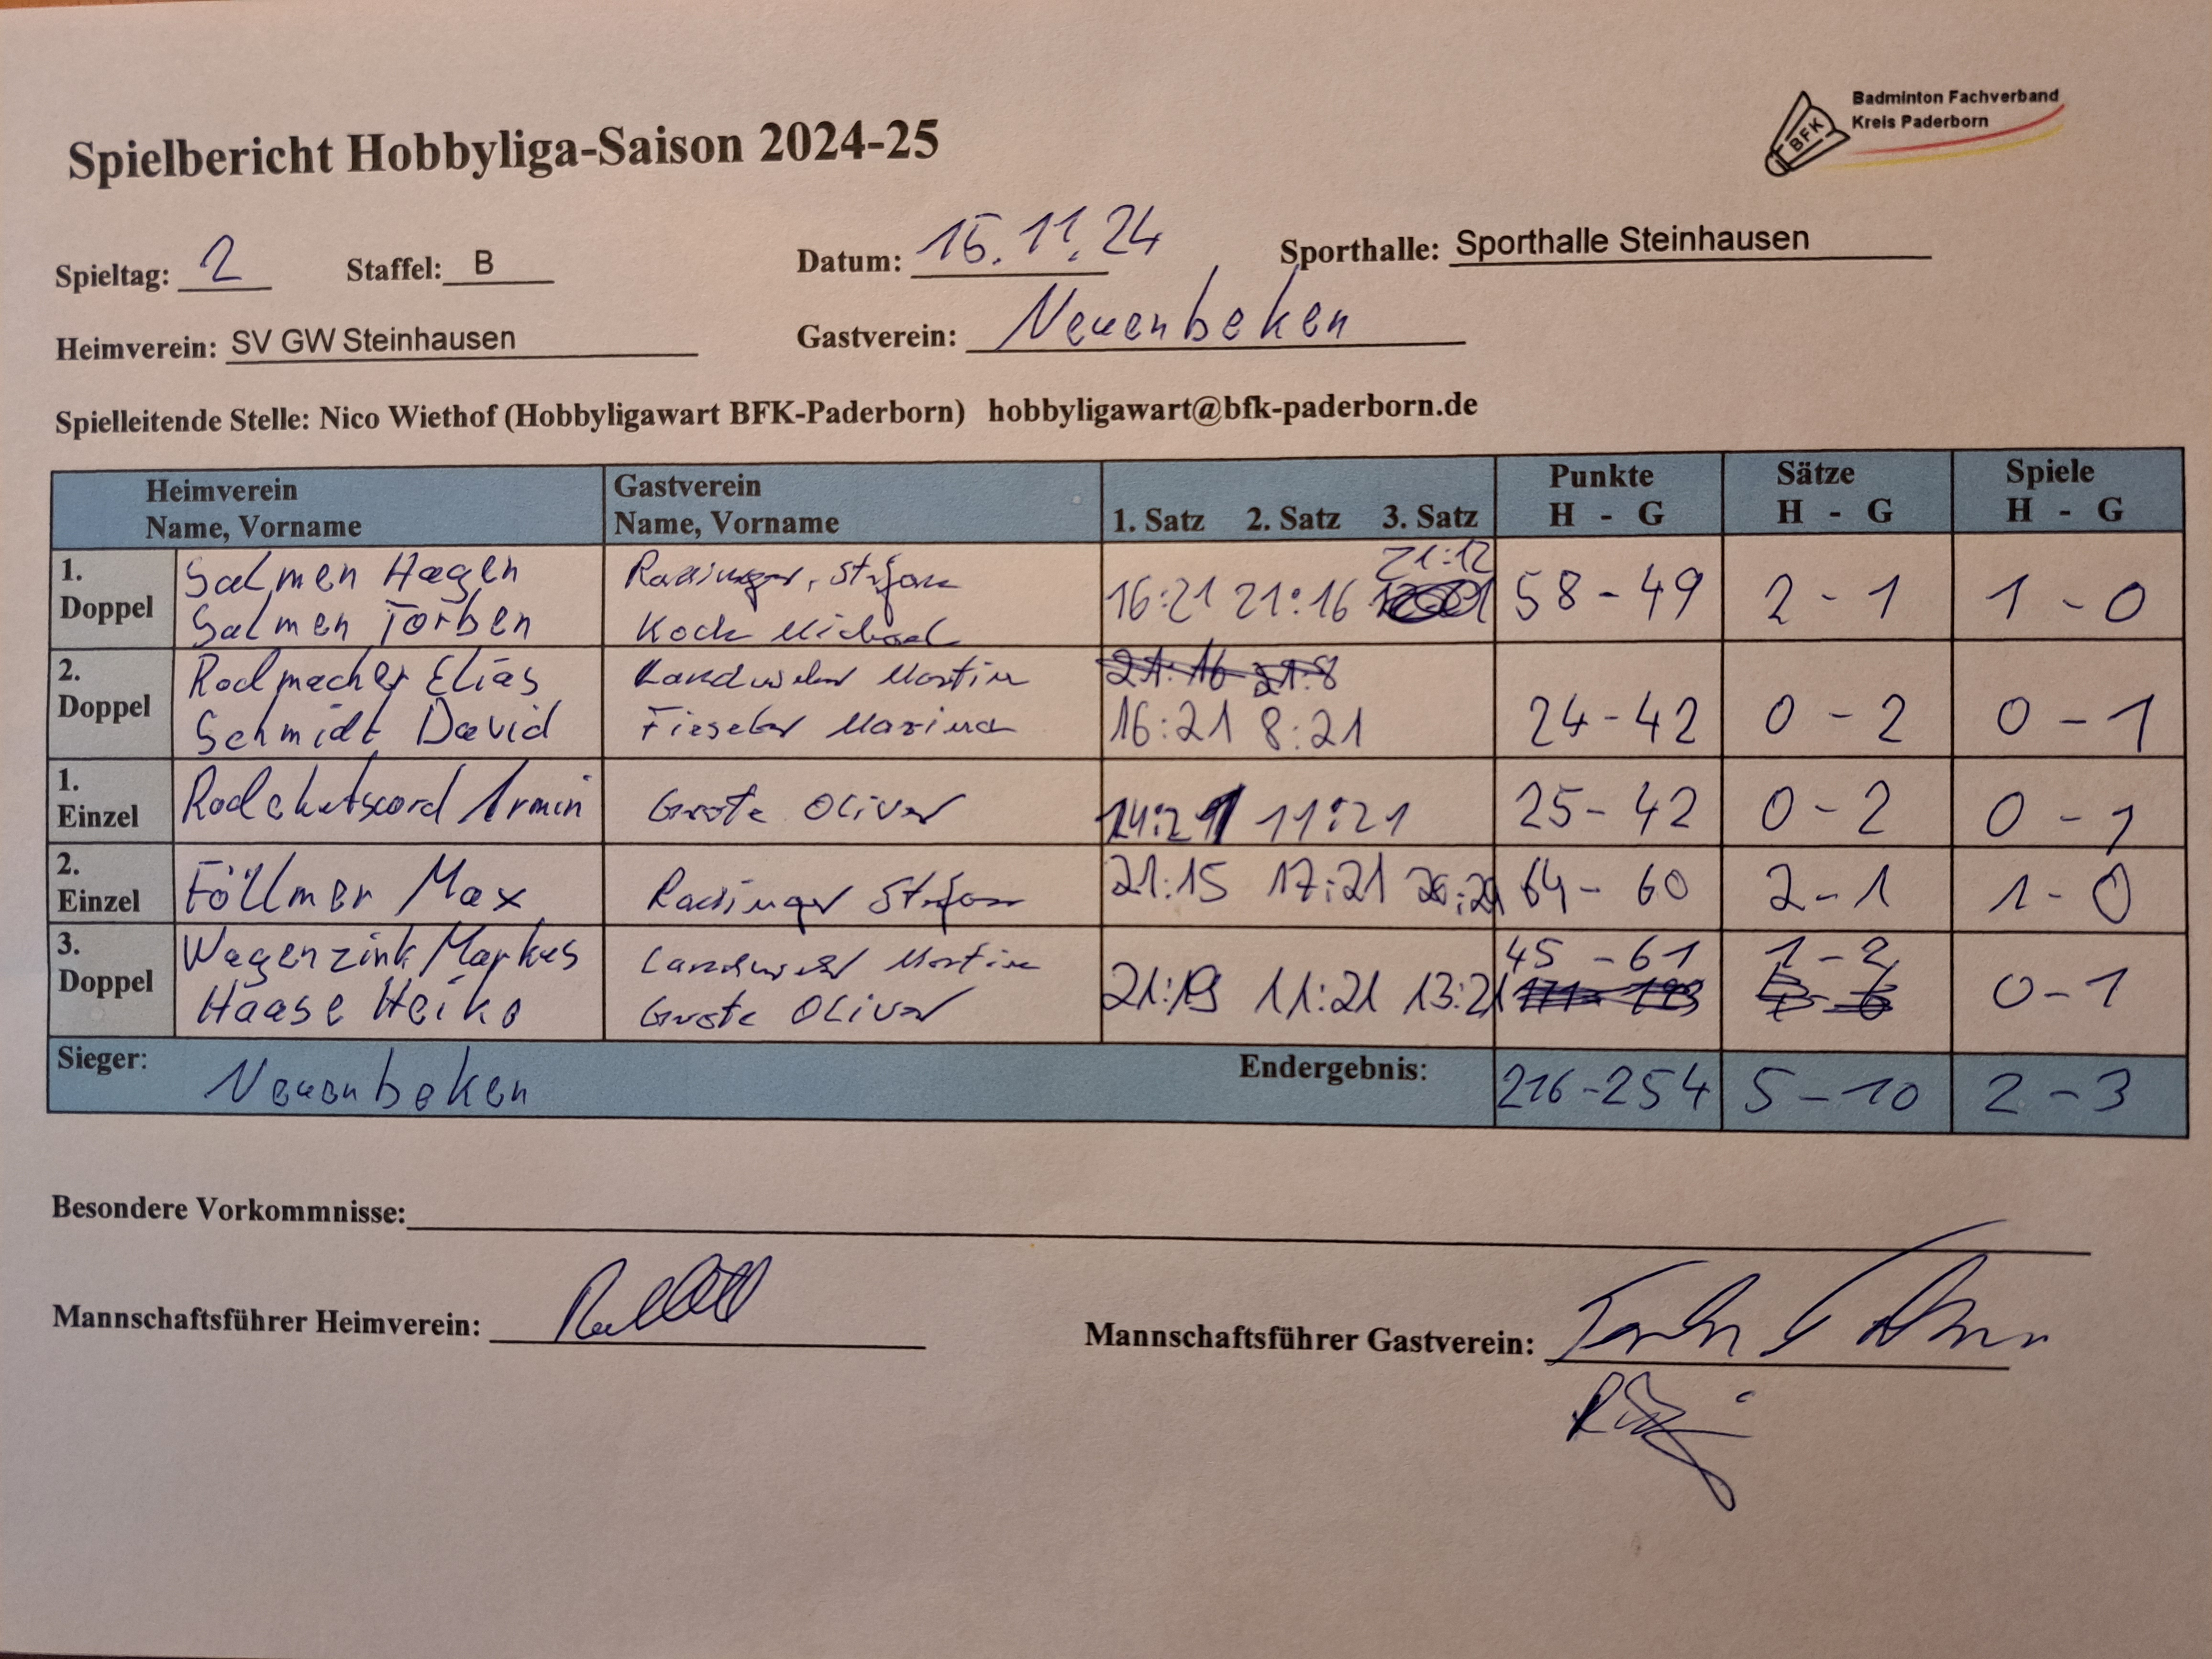 Badminton Fachverband
Kreis Paderborn
BFK
Spielbericht Hobbyliga-Saison 2024-25
Spieltag: 2 Staffel: B Datum: 15.11.24 Sporthalle: Sporthalle Steinhausen
Heimverein: SV GW Steinhausen Gastverein: Neuenbeken
Spielleitende Stelle: Nico Wiethof (Hobbyligawart BFK-Paderborn) hobbyligawart@bfk-paderborn.de
Heimverein Gastverein Punkte Sätze Spiele
Name, Vorname Name, Vorname 1. Satz 2. Satz 3. Satz H - G H - G H - G
1. Salmen Hagen Stefan 21:12
Doppel Salmen Torben Koch Michael 16:21 21:16 58-49 2-1 1-0
2. Radmacher Elias Martin 21:16 21:8
Doppel Schmidt David 16:21 8:21 24-42 0-2 0-1
1.
Einzel Armin Grote Oliver 14:21 11:21 25-42 0-2 0-1
2.
Einzel Föllmer Max Stefan 21:15 17:21 64-60 2-1 1-0
3. Wagenzink Markus Martin 45-61 1-2
Doppel Haase Heiko Grote Oliver 21:19 11:21 13:21 0-1
Sieger: Neuenbeken Endergebnis: 216-254 5-10 2-3
Besondere Vorkommnisse:
Mannschaftsführer Heimverein: Mannschaftsführer Gastverein: